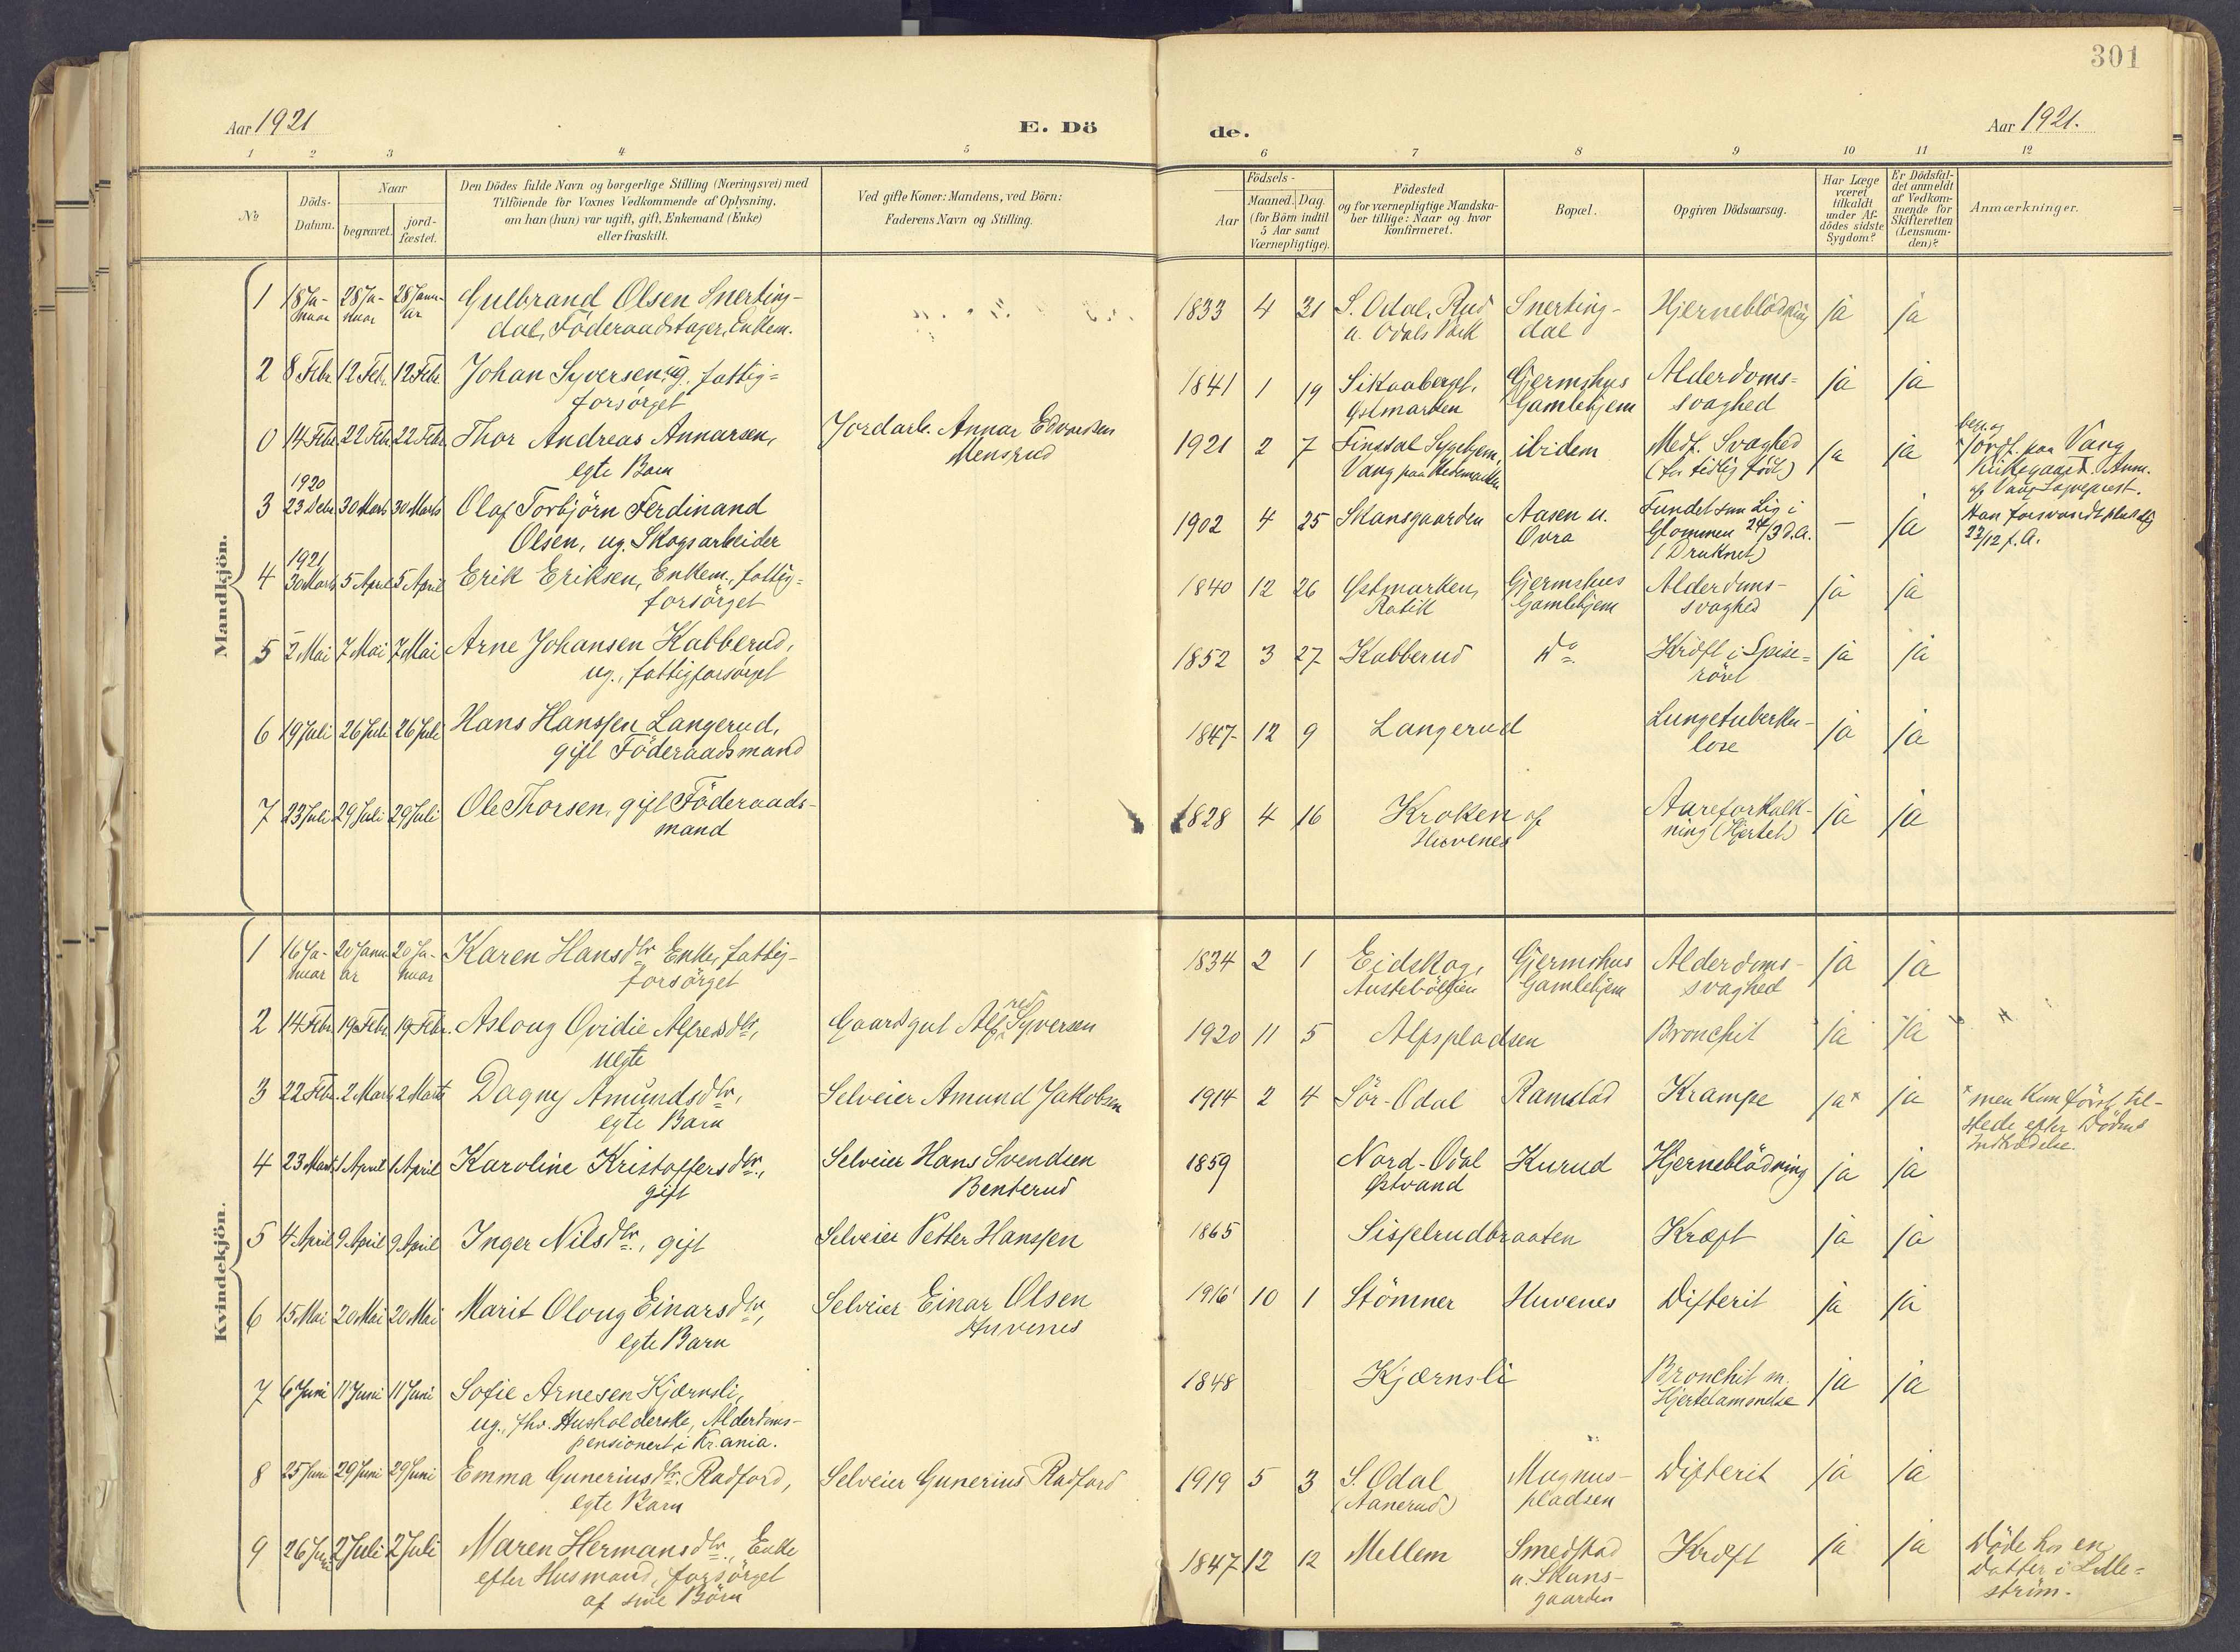 301
Aar 1921 E. Dö de. Aar 1921.
1 2 3 4 5 6 7 8 9 10 11 12
No
Döds-
Datum.
Naar
begravet.
jord-
fæstet.
Den Dödes fulde Navn og borgerlige Stilling (Næringsvei) med
Tilföiende for Voxnes Vedkommende af Oplysning,
om han (hun) var ugift, gift, Enkemand (Enke)
eller fraskilt.
Ved gifte Koner: Mandens, ved Börn:
Faderens Navn og Stilling.
Födsels-
Aar
Maaned. Dag.
(for Börn indtil
5 Aar samt
Værnepligtige).
Födested
og for værnepligtige Mandska-
ber tillige: Naar og hvor
konfirmeret.
Bopæl.
Opgiven Dödsaarsag.
Har Læge
været
tilkaldt
under Af-
dödes sidste
Sygdom?
Er Dödsfal-
det anmeldt
af Vedkom-
mende for
Skifteretten
(Lensman-
den)?
Anmærkninger.
Mandkjön.
1 18 Ja- 28 Ja- 28 Janu- Gulbrand Olsen Snerting- 1833 4 21 S. Odal, Rud Snerting- Hjerneblödning ja ja
nuar nuar ar dal, Föderaadstager, Enkem. u. Odals Værk dal
2 8 Febr. 12 Feb. 12 Febr. Johan Syversen, ug. fattig= 1841 1 19 Sikaaberget, Gjermshus Alderdoms= ja ja
forsörget Østmarken Gamlehjem svaghed
0 14 Febr. 22 Febr. 22 Febr. Thor Andreas Annarsen, Jordarb. Annar Edvardsen 1921 2 7 Finsdal Sygehjem, ibidem Medf. Svaghed ja ja begr. og jordf. paa Vang
egte Barn Mensrud Vang paa Hedemarken (for tidlig född) Kirkegaard. Anm.
af Vang Sogneprest.
1920
3 23 Debr. 30 Marts 30 Marts Olaf Torbjörn Ferdinand 1902 4 25 Skansgaarden Aasen u. Fundet som Lig i — ja Han forsvandt pludslig
Olsen, ug. Skogsarbeider Ovra Glommen 24/3 d.A. 22/12 f. A.
(Druknet)
1921
4 30 Marts 5 April 5 April Erik Eriksen, Enkem., fattig= 1840 12 26 Østmarken, Gjermshus Alderdoms- ja ja
forsörget Rotik Gamlehjem svaghed
5 2 Mai 7 Mai 7 Mai Arne Johansen Kabberud, 1852 3 27 Kabberud do Kræft i Spise= ja ja
ug., fattigforsörget röret
6 19 Juli 26 Juli 26 Juli Hans Hanssen Langerud, 1847 12 9 Langerud Lungetuberku- ja ja
gift Föderaadsmand lose
7 23 Juli 29 Juli 29 Juli Ole Thorsen, gift Föderaads- 1828 4 16 Kroken af Aareforkalk- ja ja
mand Huvenes ning (Hjertet)
Kvindekjön.
1 16 Ja- 20 Janu- 20 Ja- Karen Hansdtr. Enke, fattig- 1834 2 1 Eidskog, Gjermshus Alderdoms- ja ja
nuar ar nuar forsörget Gamlehjem svaghed
2 14 Febr. 19 Febr. 19 Febr. Aslaug Ovidie Alfredsdtr., Gaardgut Alfred Syversen 1920 11 5 Alfspladsen Bronchit ja ja
uegte
3 22 Febr. 2 Marts 2 Marts Dagny Amundsdtr., Selveier Amund Jakobsen 1914 2 4 Sör-Odal Ramstad Krampe ja* ja * men kun först til-
egte Barn stede efter Dödens
Indtrædelse.
4 23 Marts 1 April 1 April Karoline Kristoffersdtr., Selveier Hans Svendsen 1859 Nord-Odal Kurud Hjerneblödning ja ja
gift Benterud Østvand
5 4 April 9 April 9 April Inger Nilsdtr., gift Selveier Petter Hanssen 1865 Sisselrudbraaten Kræft ja ja
6 15 Mai 20 Mai 20 Mai Marit Oloug Einarsdtr., Selveier Einar Olsen 1916 10 1 Stömner Huvenes Difterit ja ja
egte Barn Huvenes
7 6 Juni 11 Juni 11 Juni Sofie Arnesen Kjærnsli, 1848 Kjærnsli Bronchit m. ja ja
ug., fhv. Husholderske, Alderdoms- Hjertelammelse
pensionert i Kr.ania.
8 25 Juni 29 Juni 29 Juni Emma Guneriusdtr. Radford, Selveier Gunerius Radford 1919 5 3 S. Odal Magnus- Difterit ja ja
egte Barn (Aanerud) pladsen
9 26 Juni 2 Juli 2 Juli Maren Hermansdtr., Enke 1847 12 12 Mellem Smedstad Kræft ja ja Döde hos en
efter Husmand, forsörget u. Skans- Datter i Lille=
af sine Börn gaarden ström.